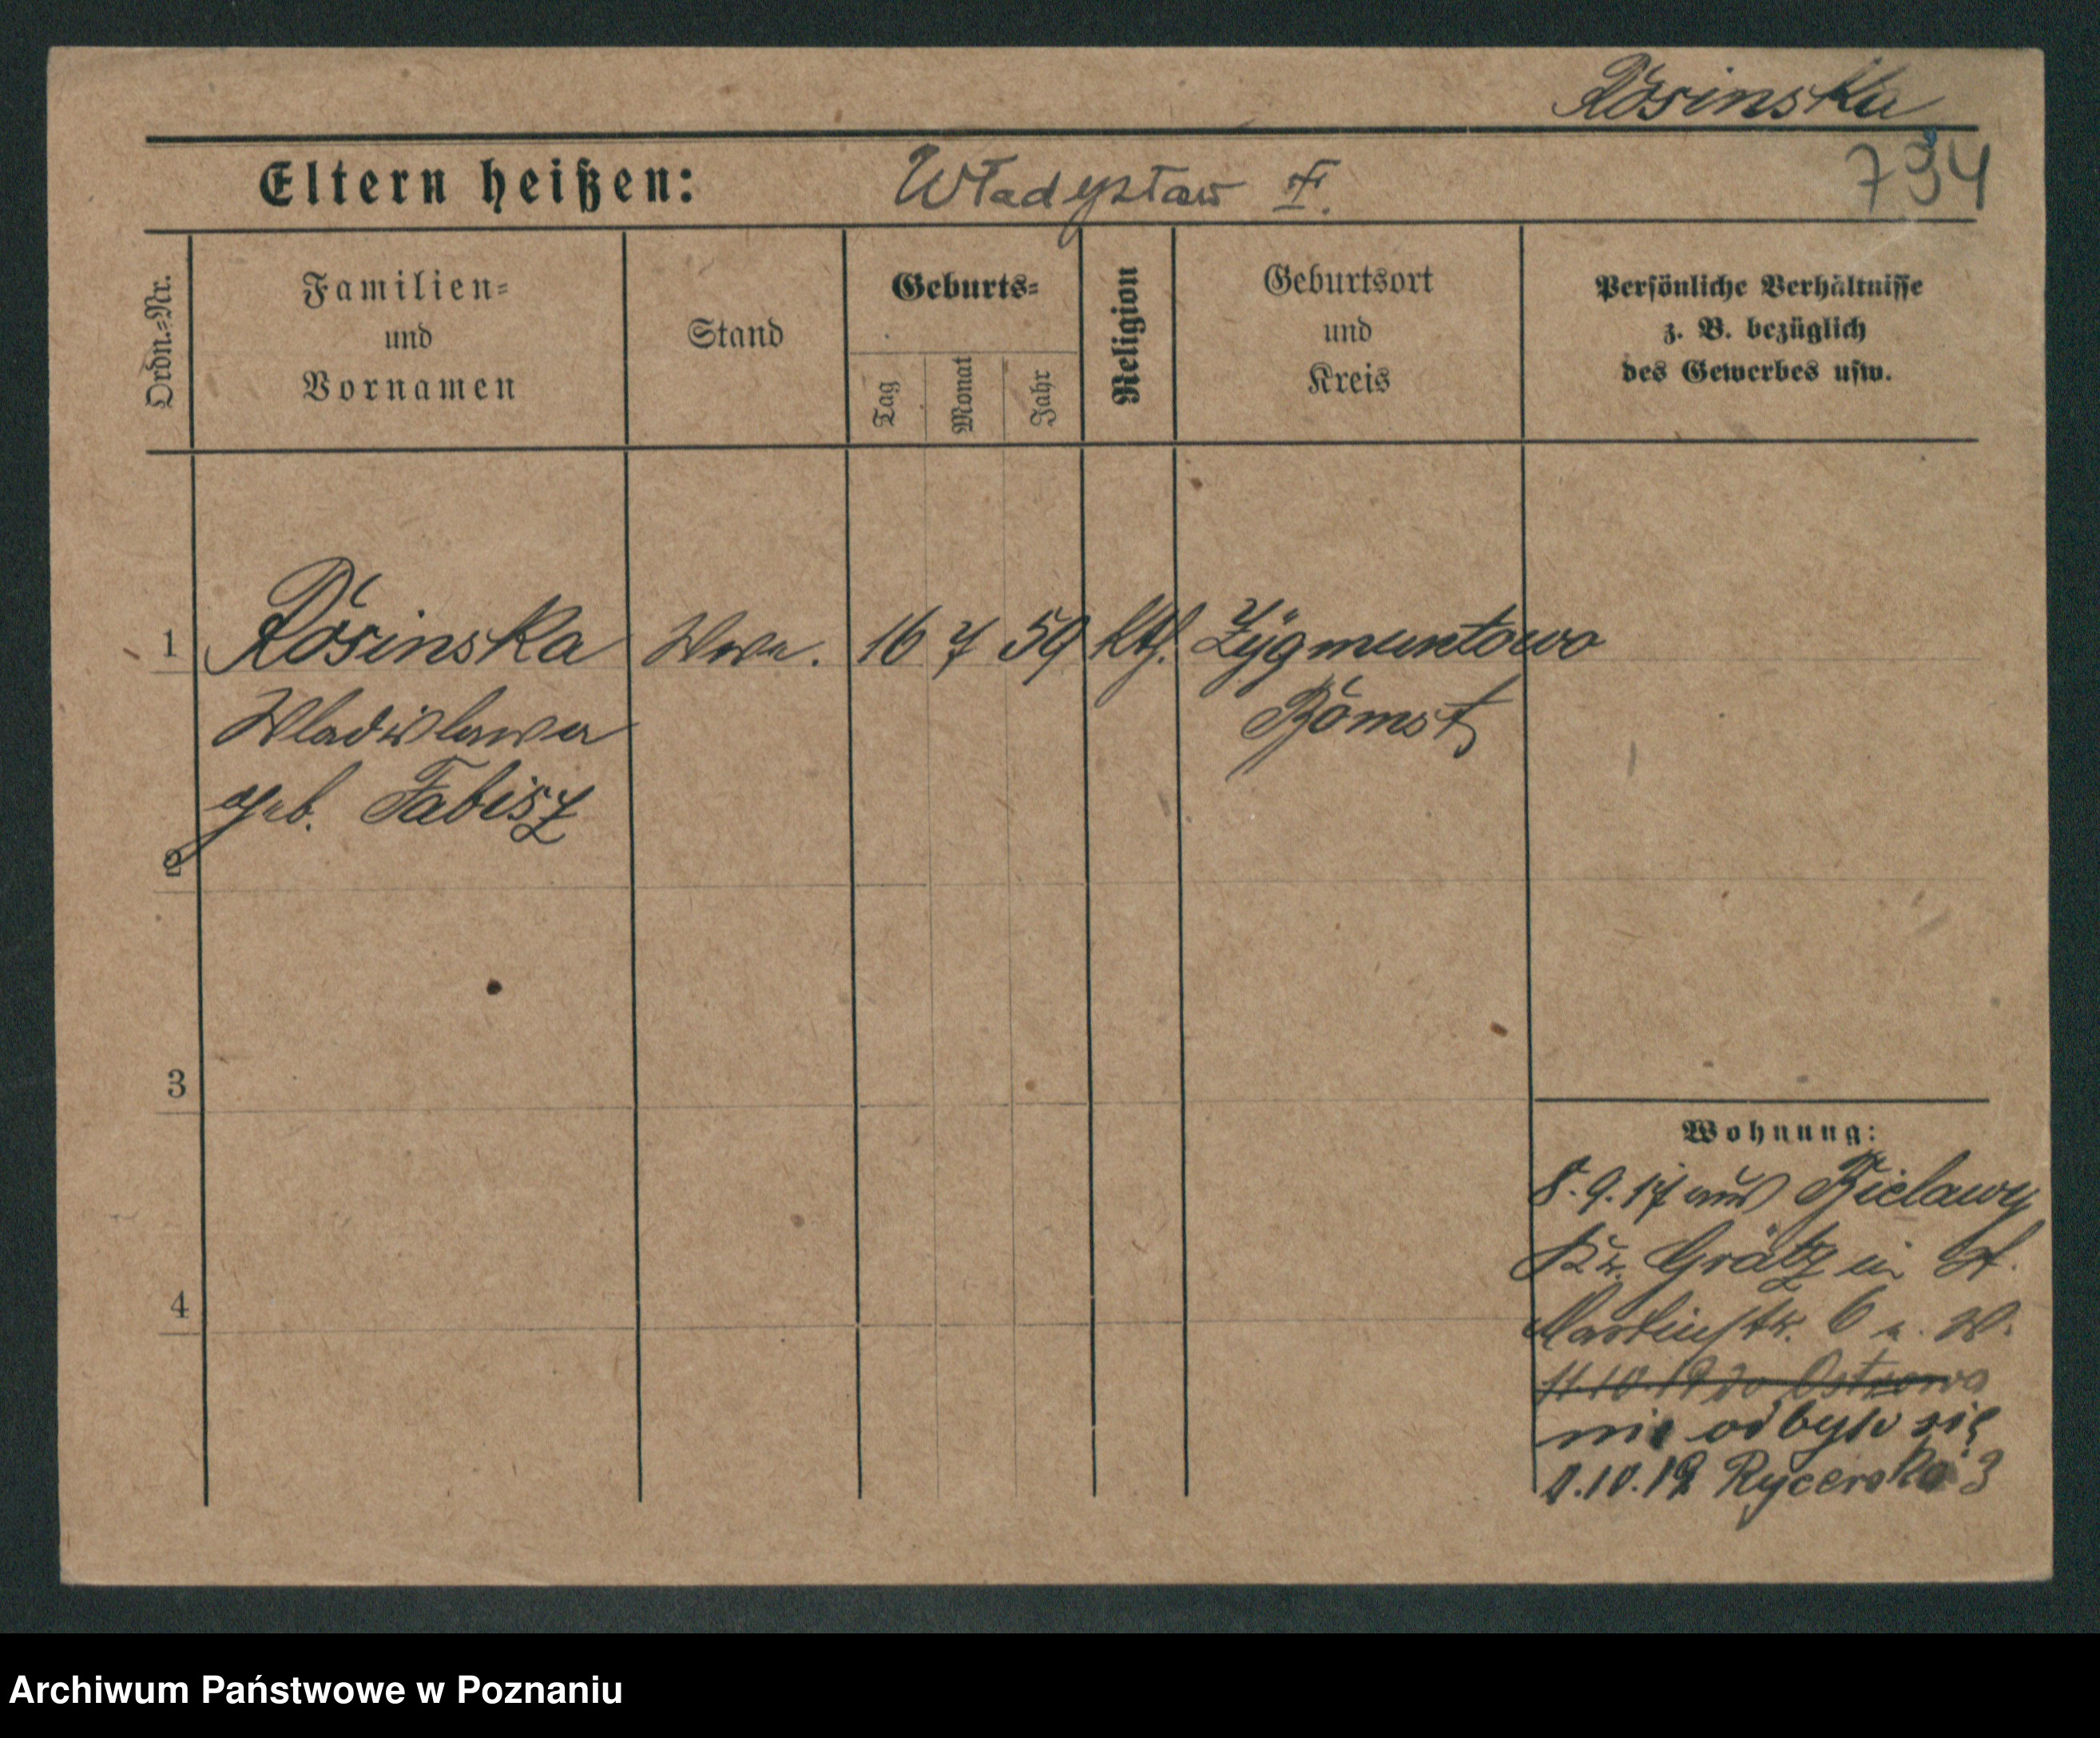 Rósinska
Eltern heißen: Władysław F.
794
Ordn.=Nr.
Familien=
und
Vornamen
Stand
Geburts=
Tag
Monat
Jahr
Religion
Geburtsort
und
Kreis
Persönliche Verhältnisse
z. B. bezüglich
des Gewerbes usw.
1 Rósinska Wwe. 16 7 59 kth. Zygmuntowo
Wladislawa Bomst
geb. Fabisz
2
3
4
Wohnung:
8.9.17 aus Bielawy
Kr. Grätz in St.
Martinstr. 6 b. W.
11.10.19 do Ostrowa
nie odbyło się
10.19 Rycerska 3
Archiwum Państwowe w Poznaniu